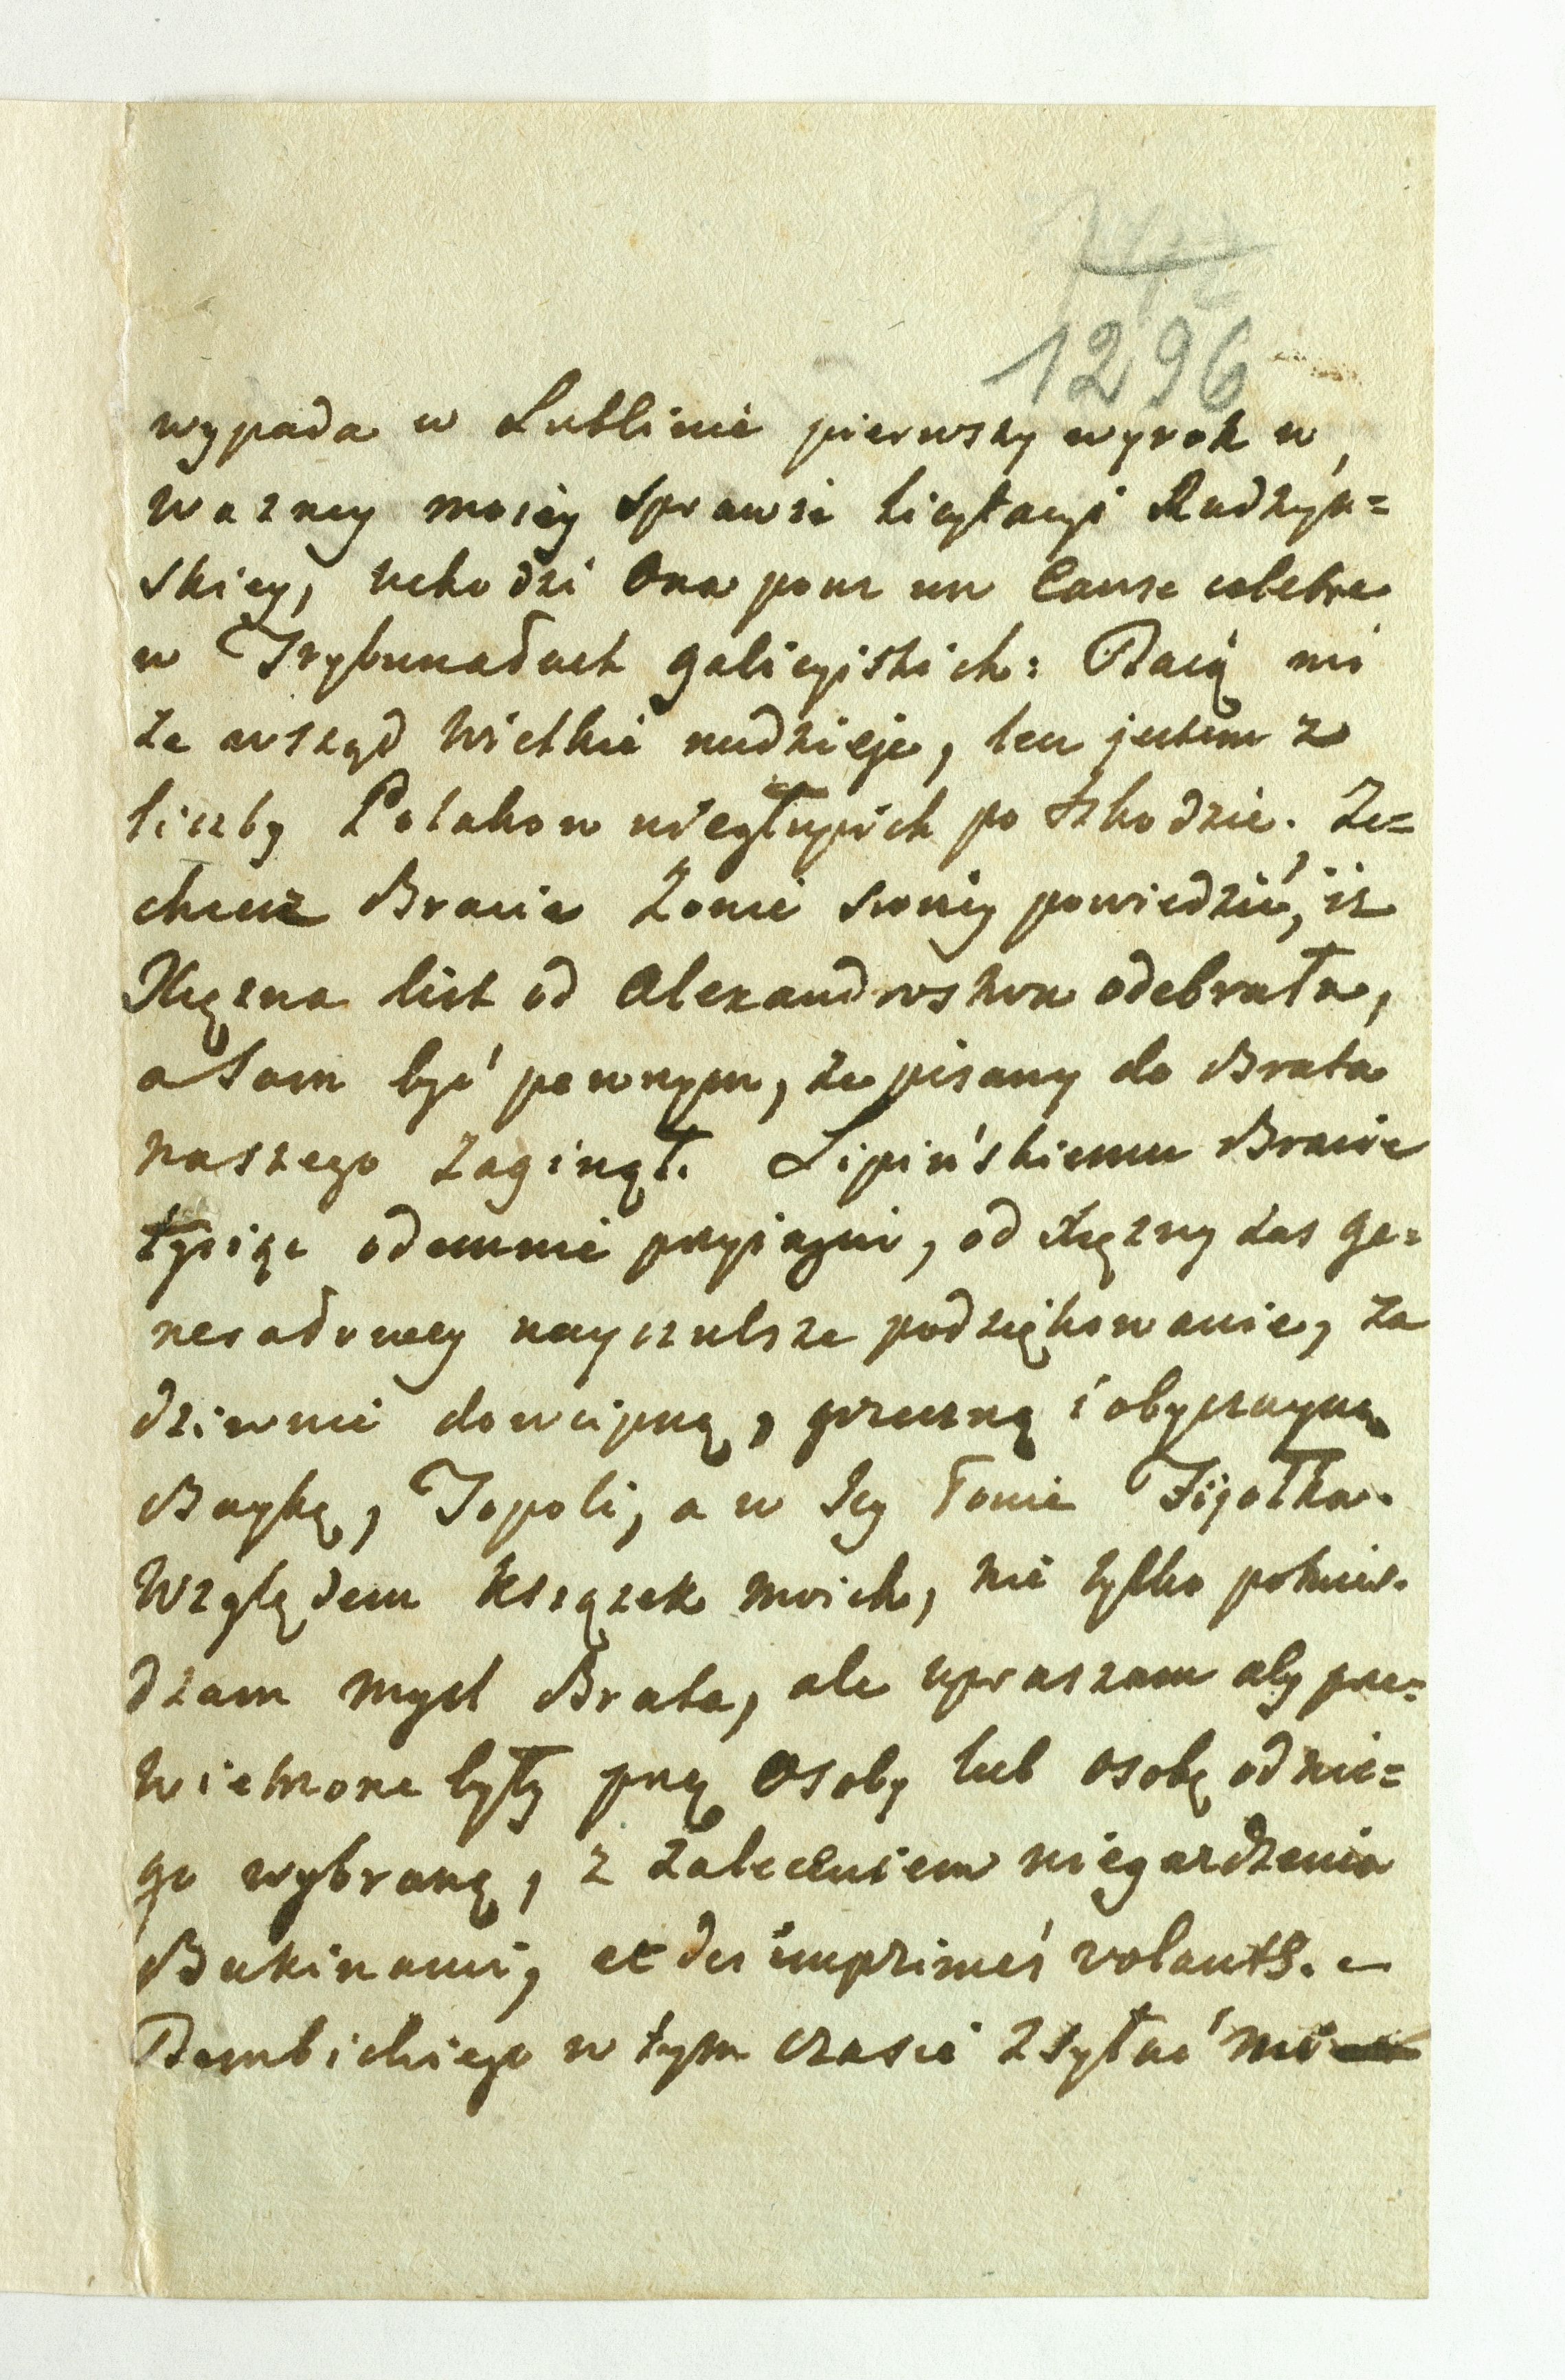 1296
wypada w Lublinie pierwszy wyrok w
wazney moiey sprawie licytacyi Radzyn=
skiey, uchodzi Ona pour un Cause celebre
w Trybunałach galicyiskich: Daią mi
ze wsząd wielkie nadzieje, lecz jestem z
liczby Polakow niegłupich po szkodzie. Ze=
chcesz Bracie Zonie swoiey powiedzić, iz
Xięzna list od Alexandrostwa odebrała,
a sam być pewnym, ze pisany do Brata
naszego zaginął. Lipińskiemu Bracie
tysiąc odemnie przyiazni, od Xięzny zas Ge=
neradowey nayczulsze podziękowanie, za
dziwnie dowcipną, grzeczną i obyczayną
Baykę, Topoli, a w Jey łonie Fijołka.
Względem Ksiązek moich, nie tylko potwier=
dzam mysl Brata, ale upraszam aby prze=
wietrzone były przę Osoby lub osobę od nie=
go wybraną, z zaleceniem niegardzenia
Bukinami, et des imprimés volants. –
Dembickiego w tym czasie zsyłać mi